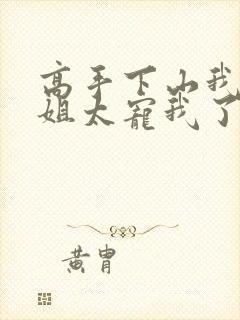 高手下山我
姐太宠我了
黄胄